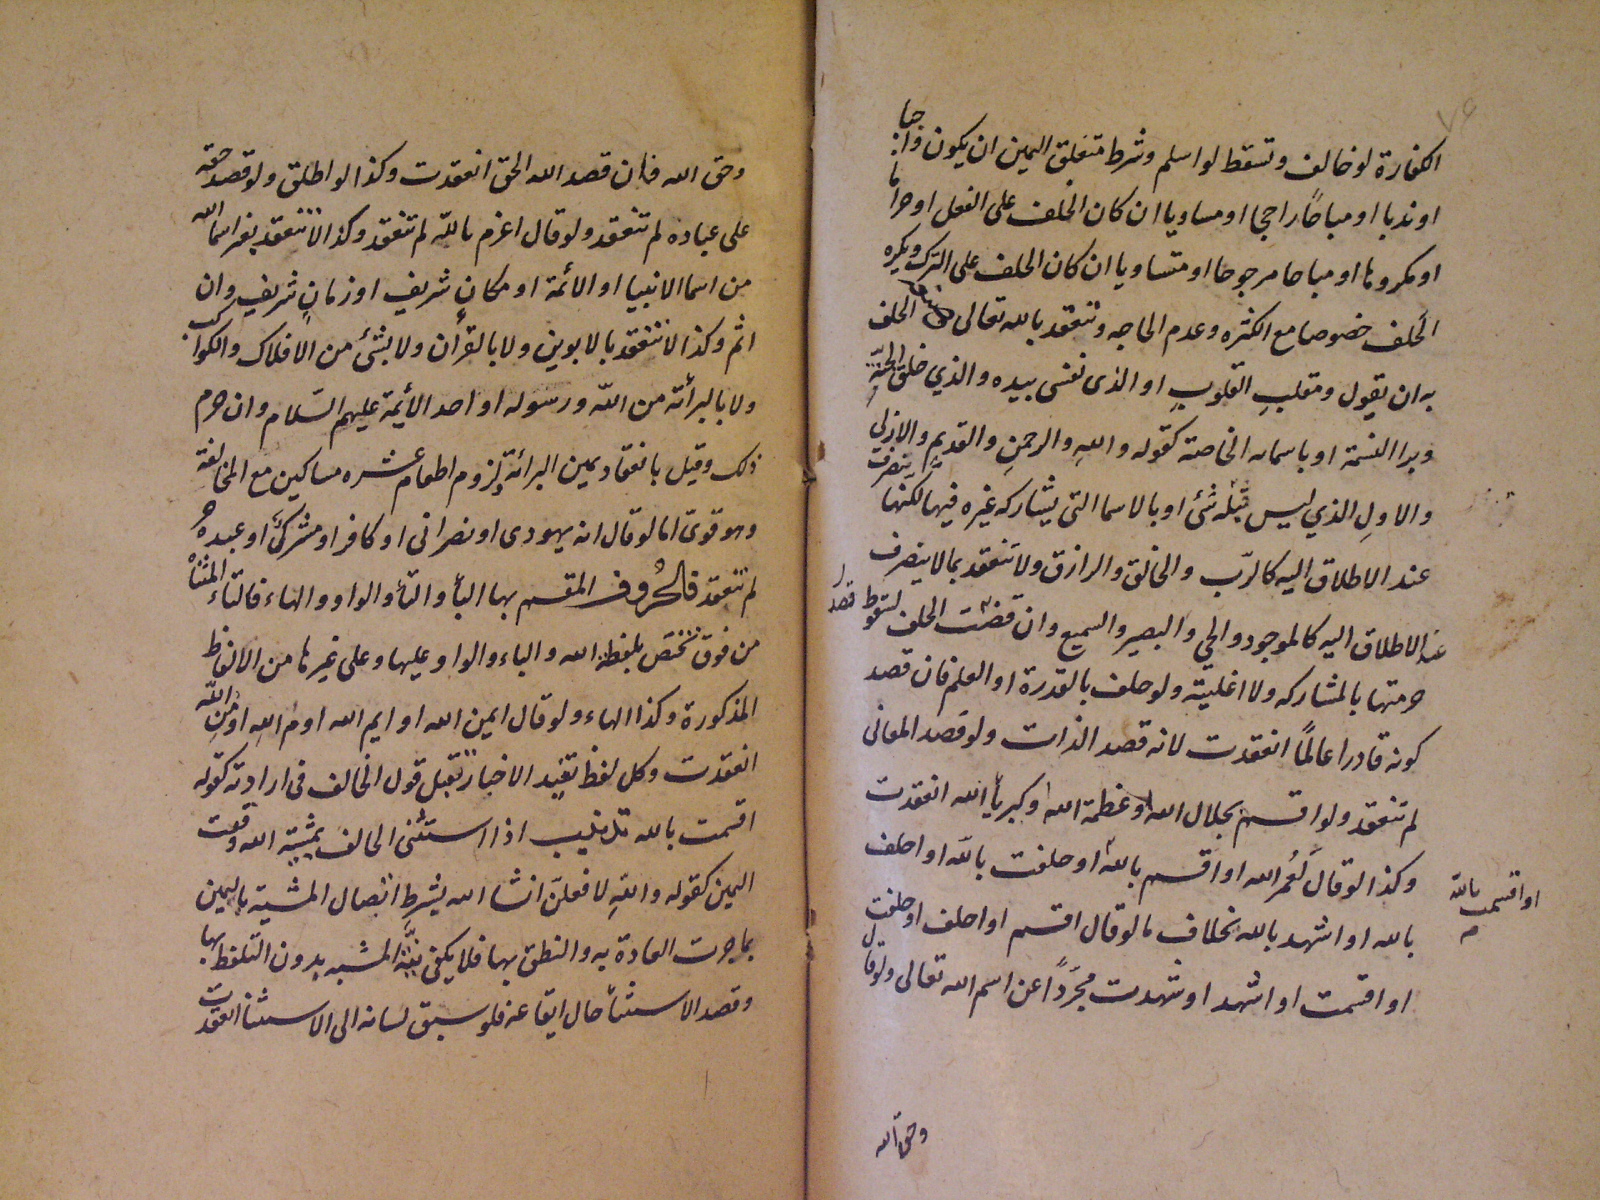 الكفارة لو خالف وتسقط لو اسلم وشرط متعلق اليمين ان يكون واجبا
او ندبا او مباحًا راجحا او مساويا ان كان الحلف على الفعل او حراما
او مكروها او مباحا مرجوحا او متساويا ان كان الحلف على الترك ويكره
الحلف خصوصا مع الكثره وعدم الحاجه وتنعقد بالله تعالى الحلف
به ان يقول ومقلبِ القلوبِ او الذى نفسى بيده والذي خلق الحبّة
وبرا النسمة او باسمائه الخاصة كقوله واللهِ والرحمنِ والقديمِ والازلي
والاولِ الذي ليس قبله شئ او بالاسما التى يشاركه غيره فيها لكنها ينصرف
عند الاطلاق اليه كالربّ والخالق والرازق ولا تنعقد بما لا ينصرف
عند الاطلاق اليه كالموجود والحي والبصير والسميع وان قصد الحلف لسقوط
حرمتها بالمشاركه ولا اغلبية ولو حلف بالقدرة او العلم فان قصد
كونه قادرا عالمًا انعقدت لانه قصد الذات ولو قصد المعانى
لم تنعقد ولو اقسم بجلال الله او عظمة الله او كبرياء الله انعقدت
وكذا لو قال لَعُمر الله او اقسم بالله او حلفت بالله او احلف
او اقسمت بالله
بالله او اشهد بالله بخلاف ما لو قال اقسم او احلف او حلفت
او اقسمت او اشهد او شهدت مجرّدًا عن اسم الله تعالى ولو قال
وحق الله
وحق الله فان قصد الله الحق انعقدت وكذا لو اطلق ولو قصد حقه
على عباده لم تنعقد ولو قال اعزم بالله لم تنعقد وكذا لا تنعقد بغير اسما الله
من اسما الانبيا او الائمة او مكانٍ شريف او زمانٍ شريف وان
اثم وكذا لا تنعقد بالابوين ولا بالقرآن ولا بشئ من الافلاك والكواكب
ولا بالبرأئة من اللّه ورسوله او احد الأيمة عليهم السّلام وان حرم
ذلك وقيل بانعقاد يمين البرائة ولزوم اطعام عشره مساكين مع المخالفة
وهو قوىّ اما لو قال انه يهودى او نصرانى او كافر او مشرك او عبده حر
لم تنعقد فالحُروف المقسم بها البأ والتأ والواو والهاء فالتاء المثناة
من فوق تختصّ بلفظة الله والباء والواو عليها وعلى غيرها من الالفاظ
المذكورة وكذا الهاء ولو قال ايمن الله او ايم الله او مُ اللهِ او مُن اللّه
انعقدت وكل لفظ تفيد الاخبار تقبل قول الحالف فى ارادته كقوله
اقسمت بالله تذنيب اذا استثنى الحالف بمشية الله وقعت
اليمين كقوله واللهِ لافعلنّ انشا الله يشرط اتصال المشية باليمين
بما جرت العادة به والنطق بها فلا يكفى نيّة المشيه بدون التلفظ بها
وقصد الاستثنأ حال ايقاعه فلو سبق لسانه الى الاستثنا انعقدت